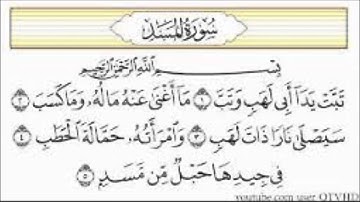 سُورَةُ المَسَدِ
بِسْمِ اللَّهِ الرَّحْمَٰنِ الرَّحِيمِ
تَبَّتْ يَدَا أَبِي لَهَبٍ وَتَبَّ ١ مَا أَغْنَىٰ عَنْهُ مَالُهُ وَمَا كَسَبَ ٢
سَيَصْلَىٰ نَارًا ذَاتَ لَهَبٍ ٣ وَامْرَأَتُهُ حَمَّالَةَ الْحَطَبِ ٤
فِي جِيدِهَا حَبْلٌ مِّن مَّسَدٍ ٥
youtube.com user QTVHD